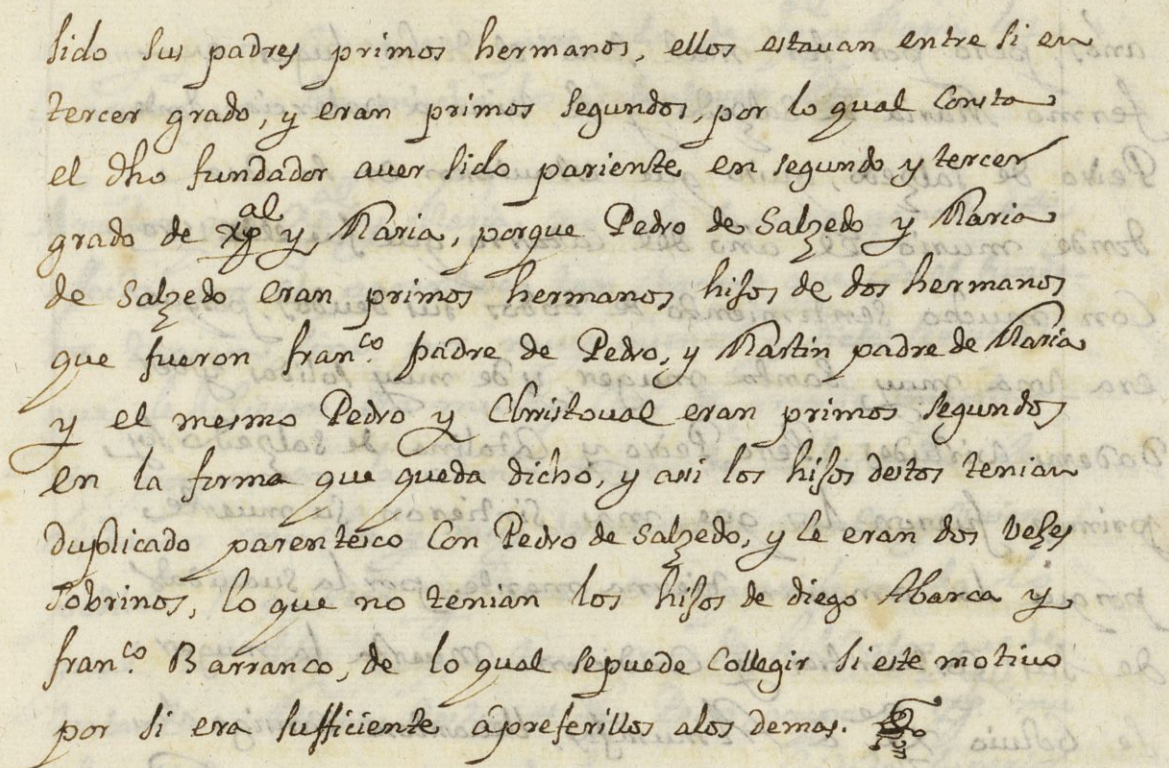 sido sus padres primos hermanos, ellos estavan entre si en
tercer grado, y eran primos segundos, por lo qual Consta
el dho fundador auer sido pariente en segundo y tercer
grado de Xpal y Maria, porque Pedro de Salzedo y Maria
de Salzedo eran primos hermanos hijos de dos hermanos
que fueron franco. padre de Pedro, y Martin padre de Maria
y el mesmo Pedro y Christoual eran primos segundos
en la forma que queda dicho, y assi los hijos destos tenian
duplicado parentesco Con Pedro de Salzedo, y le eran dos vezes
sobrinos, lo que no tenian los hijos de diego Abarca y
franco. Barranco, de lo qual sepuede Collegir si este motiuo
por si era sufficiente apreferillos alos demas.